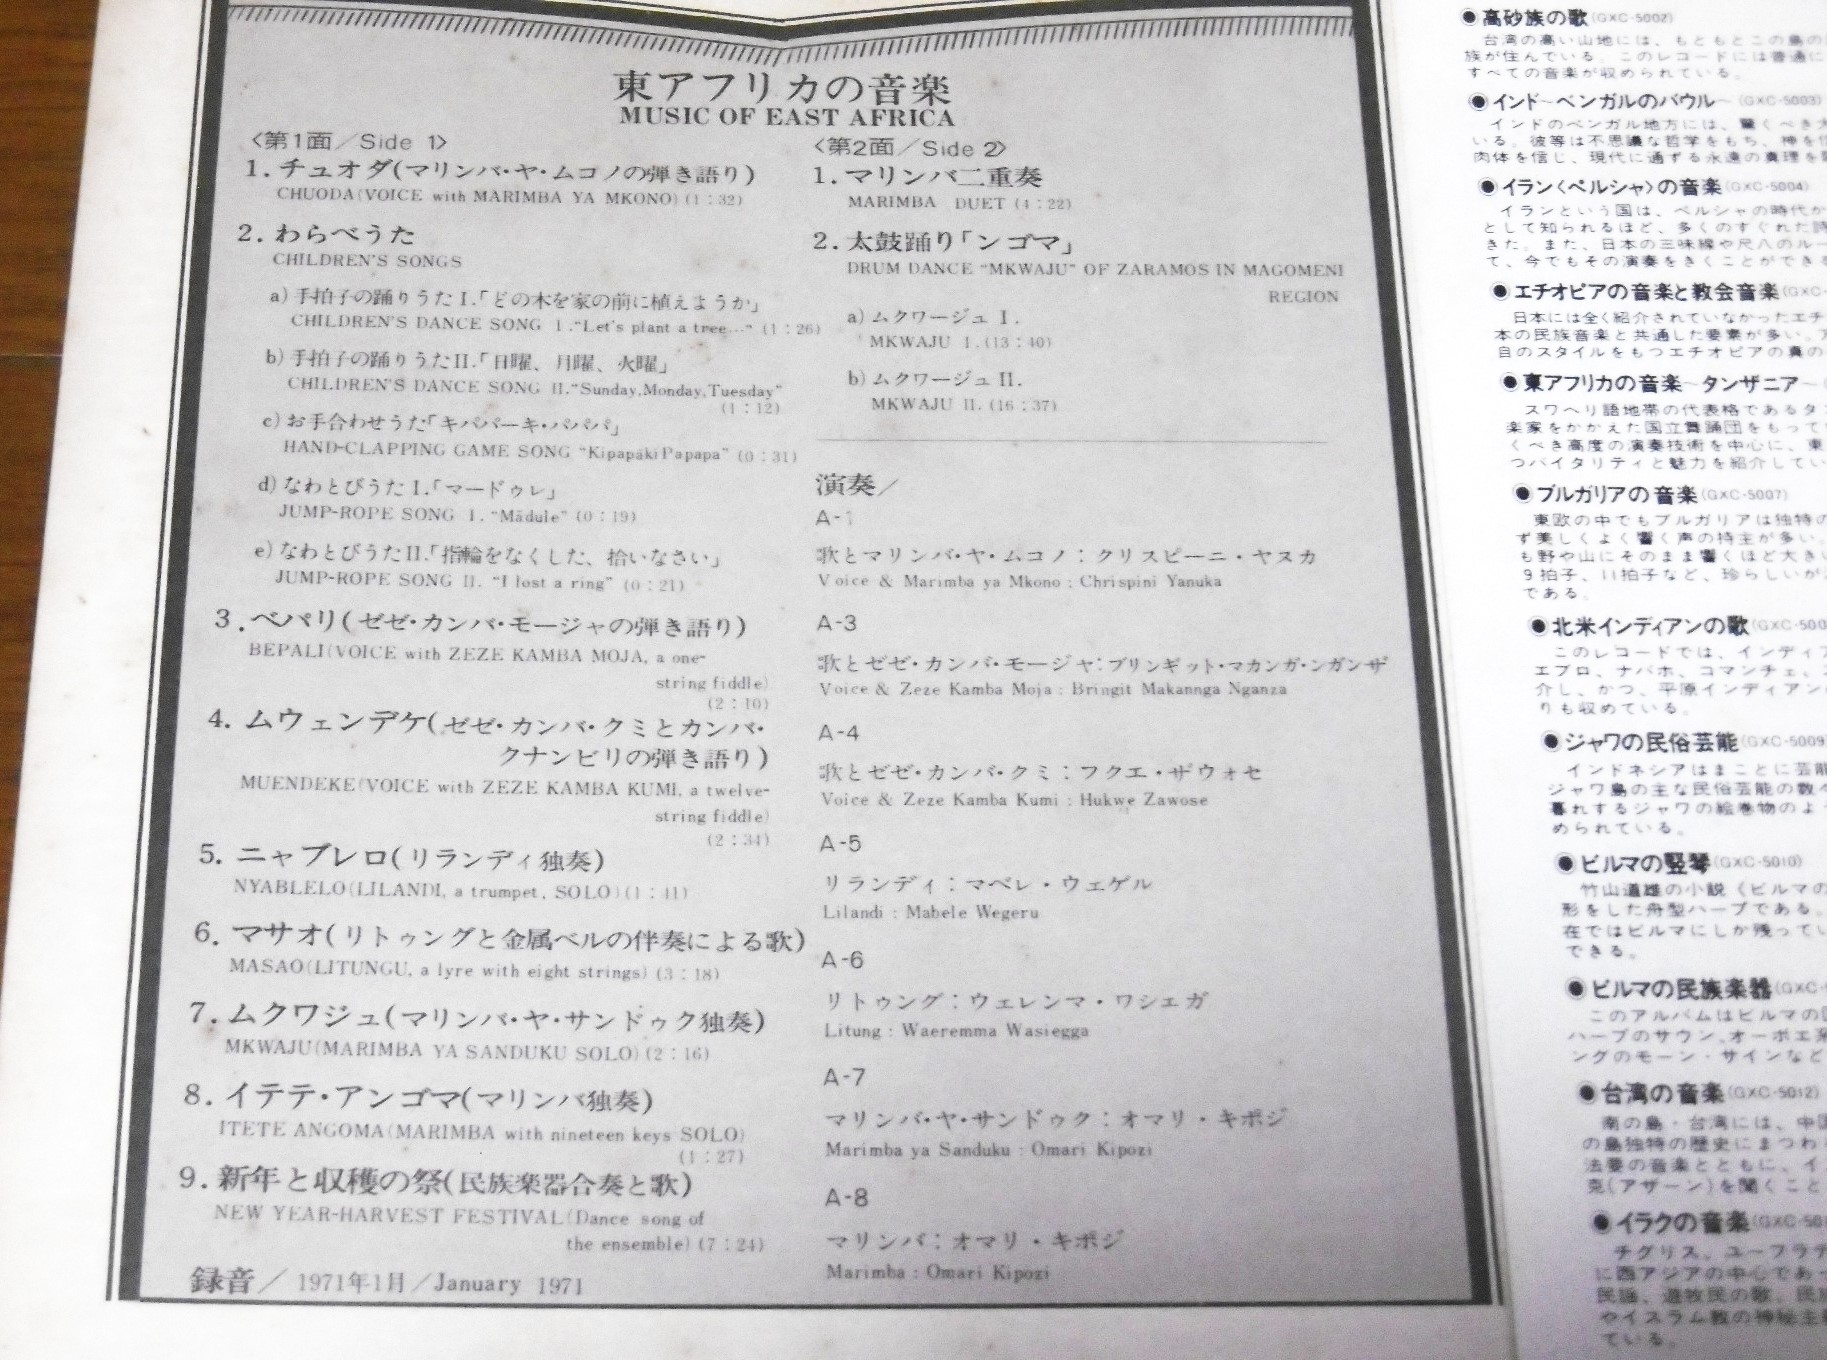 東アフリカの音楽
MUSIC OF EAST AFRICA
〈第1面／Side 1〉
1. チュオダ(マリンバ・ヤ・ムコノの弾き語り)
CHUODA(VOICE with MARIMBA YA MKONO) (1:32)
2. わらべうた
CHILDREN'S SONGS
a) 手拍子の踊りうたⅠ.「どの木を家の前に植えようか」
CHILDREN'S DANCE SONG Ⅰ.“Let's plant a tree...” (1:26)
b) 手拍子の踊りうたⅡ.「日曜、月曜、火曜」
CHILDREN'S DANCE SONG Ⅱ.“Sunday,Monday,Tuesday”
(1:12)
c) お手合わせうた「キパパーキ・パパパ」
HAND-CLAPPING GAME SONG “Kipapāki Papapa” (0:31)
d) なわとびうたⅠ.「マードゥレ」
JUMP-ROPE SONG Ⅰ. “Mādule” (0:19)
e) なわとびうたⅡ.「指輪をなくした、拾いなさい」
JUMP-ROPE SONG Ⅱ. “I lost a ring” (0:21)
3. ベパリ(ゼゼ・カンバ・モージャの弾き語り)
BEPALI(VOICE with ZEZE KAMBA MOJA, a one-
string fiddle)
(2:10)
4. ムウェンデケ(ゼゼ・カンバ・クミとカンバ・
クナンビリの弾き語り)
MUENDEKE(VOICE with ZEZE KAMBA KUMI, a twelve-
string fiddle)
(2:34)
5. ニャブレロ(リランディ独奏)
NYABLELO(LILANDI, a trumpet, SOLO) (1:41)
6. マサオ(リトゥングと金属ベルの伴奏による歌)
MASAO(LITUNGU, a lyre with eight strings) (3:18)
7. ムクワジュ(マリンバ・ヤ・サンドゥク独奏)
MKWAJU(MARIMBA YA SANDUKU SOLO) (2:16)
8. イテテ・アンゴマ(マリンバ独奏)
ITETE ANGOMA(MARIMBA with nineteen keys SOLO)
(1:27)
9. 新年と収穫の祭(民族楽器合奏と歌)
NEW YEAR-HARVEST FESTIVAL(Dance song of
the ensemble) (7:24)
録音／ 1971年1月／January 1971
〈第2面／Side 2〉
1. マリンバ二重奏
MARIMBA DUET (4:22)
2. 太鼓踊り「ンゴマ」
DRUM DANCE “MKWAJU” OF ZARAMOS IN MAGOMENI
REGION
a) ムクワージュⅠ.
MKWAJU Ⅰ. (13:40)
b) ムクワージュⅡ.
MKWAJU Ⅱ. (16:37)
演奏／
A-1
歌とマリンバ・ヤ・ムコノ：クリスピーニ・ヤヌカ
Voice & Marimba ya Mkono : Chrispini Yanuka
A-3
歌とゼゼ・カンバ・モージャ：ブリンギット・マカンガ・ンガンザ
Voice & Zeze Kamba Moja : Bringit Makannga Nganza
A-4
歌とゼゼ・カンバ・クミ：フクエ・ザウォセ
Voice & Zeze Kamba Kumi : Hukwe Zawose
A-5
リランディ：マベレ・ウェゲル
Lilandi : Mabele Wegeru
A-6
リトゥング：ウェレンマ・ワシエガ
Litung : Waeremma Wasiegga
A-7
マリンバ・ヤ・サンドゥク：オマリ・キポジ
Marimba ya Sanduku : Omari Kipozi
A-8
マリンバ：オマリ・キポジ
Marimba : Omari Kipozi
●高砂族の歌(GXC-5002)
台湾の高い山地には、もともとこの島の
族が住んでいる。このレコードには普通に
すべての音楽が収められている。
●インド～ベンガルのバウル～(GXC-5003)
インドのベンガル地方には、驚くべき
いる。彼等は不思議な哲学をもち、神を
肉体を信じ、現代に通ずる永遠の真理を
●イラン〈ペルシャ〉の音楽(GXC-5004)
イランという国は、ペルシャの時代か
として知られるほど、多くのすぐれた詩
きた。また、日本の三味線や尺八のルー
て、今でもその演奏をきくことができる
●エチオピアの音楽と教会音楽(GXC-
日本には全く紹介されていなかったエチ
本の民族音楽と共通した要素が多い。
自のスタイルをもつエチオピアの真の
●東アフリカの音楽～タンザニア～(
スワヘリ語地帯の代表格であるタン
楽家をかかえた国立舞踊団をもって
くべき高度の演奏技術を中心に、東
つバイタリティと魅力を紹介してい
●ブルガリアの音楽(GXC-5007)
東欧の中でもブルガリアは独特の
ず美しくよく響く声の持主が多い。
も野や山にそのまま響くほど大き
9拍子、11拍子など、珍らしいが
である。
●北米インディアンの歌(GXC-500
このレコードでは、インディア
エブロ、ナバホ、コマンチェ、
介し、かつ、平原インディアン
りも収めている。
●ジャワの民俗芸能(GXC-5009)
インドネシアはまことに芸能
ジャワ島の主な民俗芸能の数々
暮れするジャワの絵巻物のよ
められている。
●ビルマの竪琴(GXC-5010)
竹山道雄の小説〈ビルマの
形をした舟型ハープである。
在ではビルマにしか残ってい
できる。
●ビルマの民族楽器(GXC-
このアルバムはビルマの
ハープのサウン、オーボエ系
ングのモーン・サインなど
●台湾の音楽(GXC-5012)
南の島・台湾には、中国
の島独特の歴史にまつわ
法要の音楽とともに、イ
克(アザーン)を聞くこと
●イラクの音楽(GXC-501
チグリス、ユーフラテ
に西アジアの中心であっ
民謡、遊牧民の歌、民
やイスラム教の神秘主
ている。